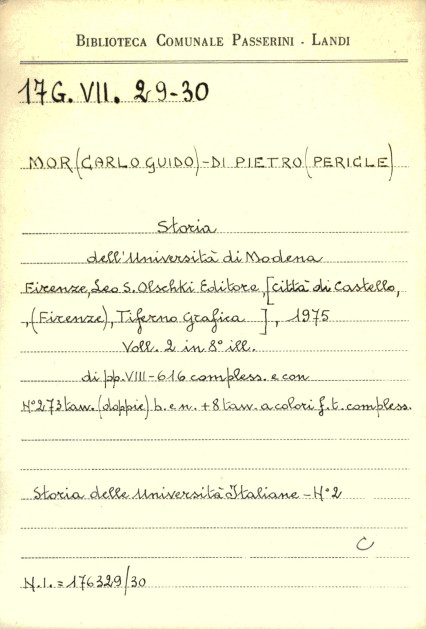 BIBLIOTECA COMUNALE PASSERINI - LANDI
17 G. VII. 29-30
MOR (CARLO GUIDO) - DI PIETRO (PERICLE)
Storia
dell'Università di Modena
Firenze, Leo S. Olschki Editore, [Città di Castello,
, (Firenze), Tiferno Grafica ], 1975
Voll. 2 in 8° ill.
di pp. VIII-616 compless. e con
N° 273 tav. (doppie) b. e n. + 8 tav. a colori f. t. compless.
Storia delle Università Italiane - N° 2
C
N.I. = 176329/30